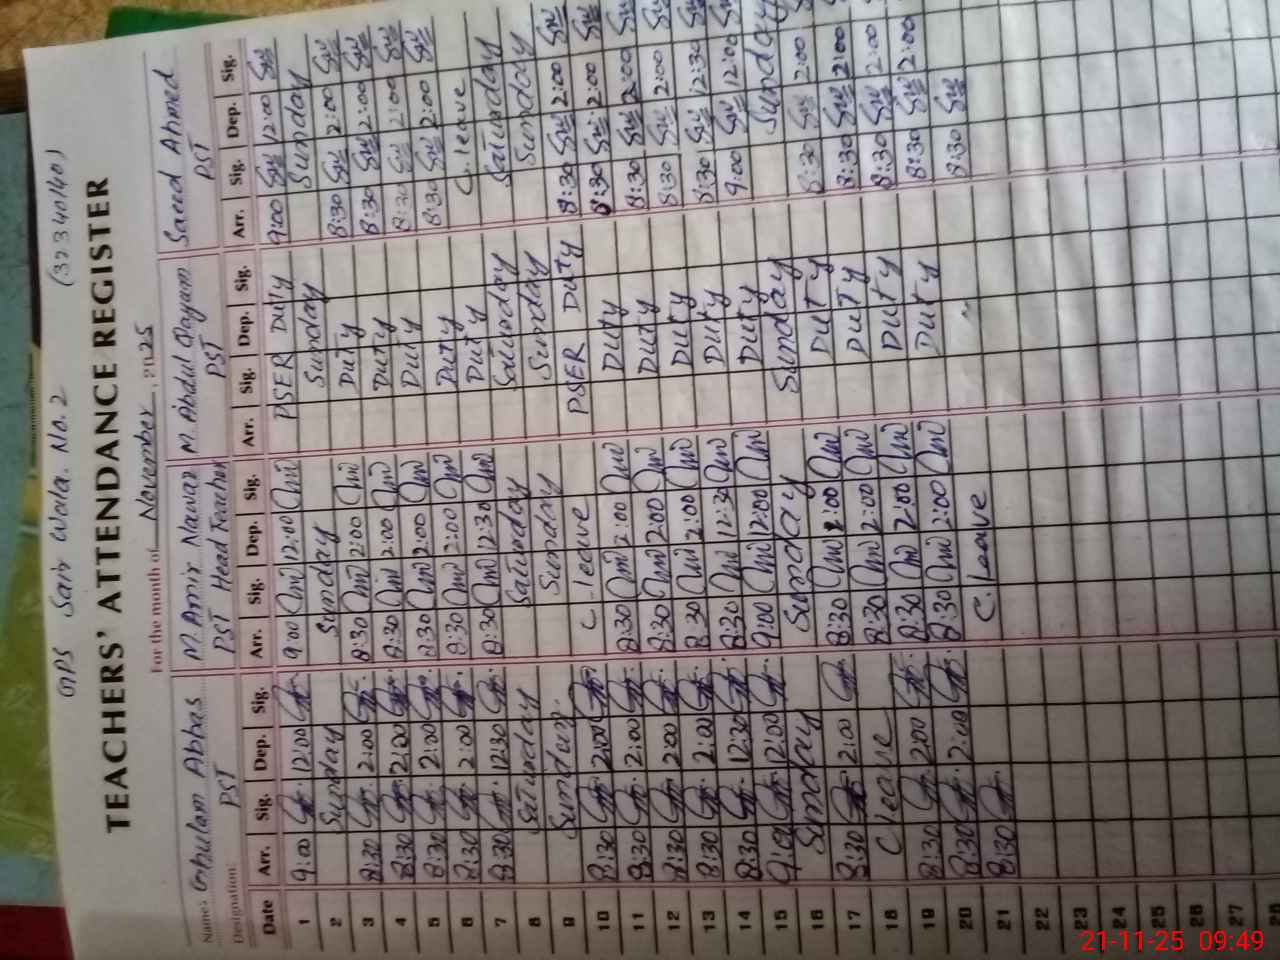 GPS Sair Wala. No. 2 (32340140)
TEACHERS' ATTENDANCE REGISTER
For the month of November, 2025
Names Ghulam Abbas M. Amir Nawaz M. Abdul Qayam Saeed Ahmed
Designation: PST PST Head Teacher PST PST
Date Arr. Sig. Dep. Sig. Arr. Sig. Dep. Sig. Arr. Sig. Dep. Sig. Arr. Sig. Dep. Sig.
1 9:00 12:00 9:00 12:00 PSER Duty 9:00 12:00
2 Sunday Sunday Sunday Sunday
3 8:30 2:00 8:30 2:00 Duty 8:30 2:00
4 8:30 2:00 8:30 2:00 Duty 8:30 2:00
5 8:30 2:00 8:30 2:00 Duty 8:30 2:00
6 8:30 2:00 8:30 2:00 Duty 8:30 2:00
7 8:30 12:30 8:30 12:30 Duty C. leave
8 Saturday Saturday Saturday Saturday
9 Sunday Sunday Sunday Sunday
10 8:30 2:00 C. leave PSER DUTY 8:30 2:00
11 8:30 2:00 8:30 2:00 Duty 8:30 2:00
12 8:30 2:00 8:30 2:00 Duty 8:30 2:00
13 8:30 2:00 8:30 2:00 Duty 8:30 2:00
14 8:30 12:30 8:30 12:30 Duty 8:30 12:30
15 9:00 12:00 9:00 12:00 Duty 9:00 12:00
16 Sunday Sunday Sunday Sunday
17 8:30 2:00 8:30 2:00 Duty 8:30 2:00
18 C leave 8:30 2:00 Duty 8:30 2:00
19 8:30 2:00 8:30 2:00 Duty 8:30 2:00
20 8:30 2:00 8:30 2:00 Duty 8:30 2:00
21 8:30 C. leave 8:30
22
23
24
25
26
27
28
21-11-25 09:49